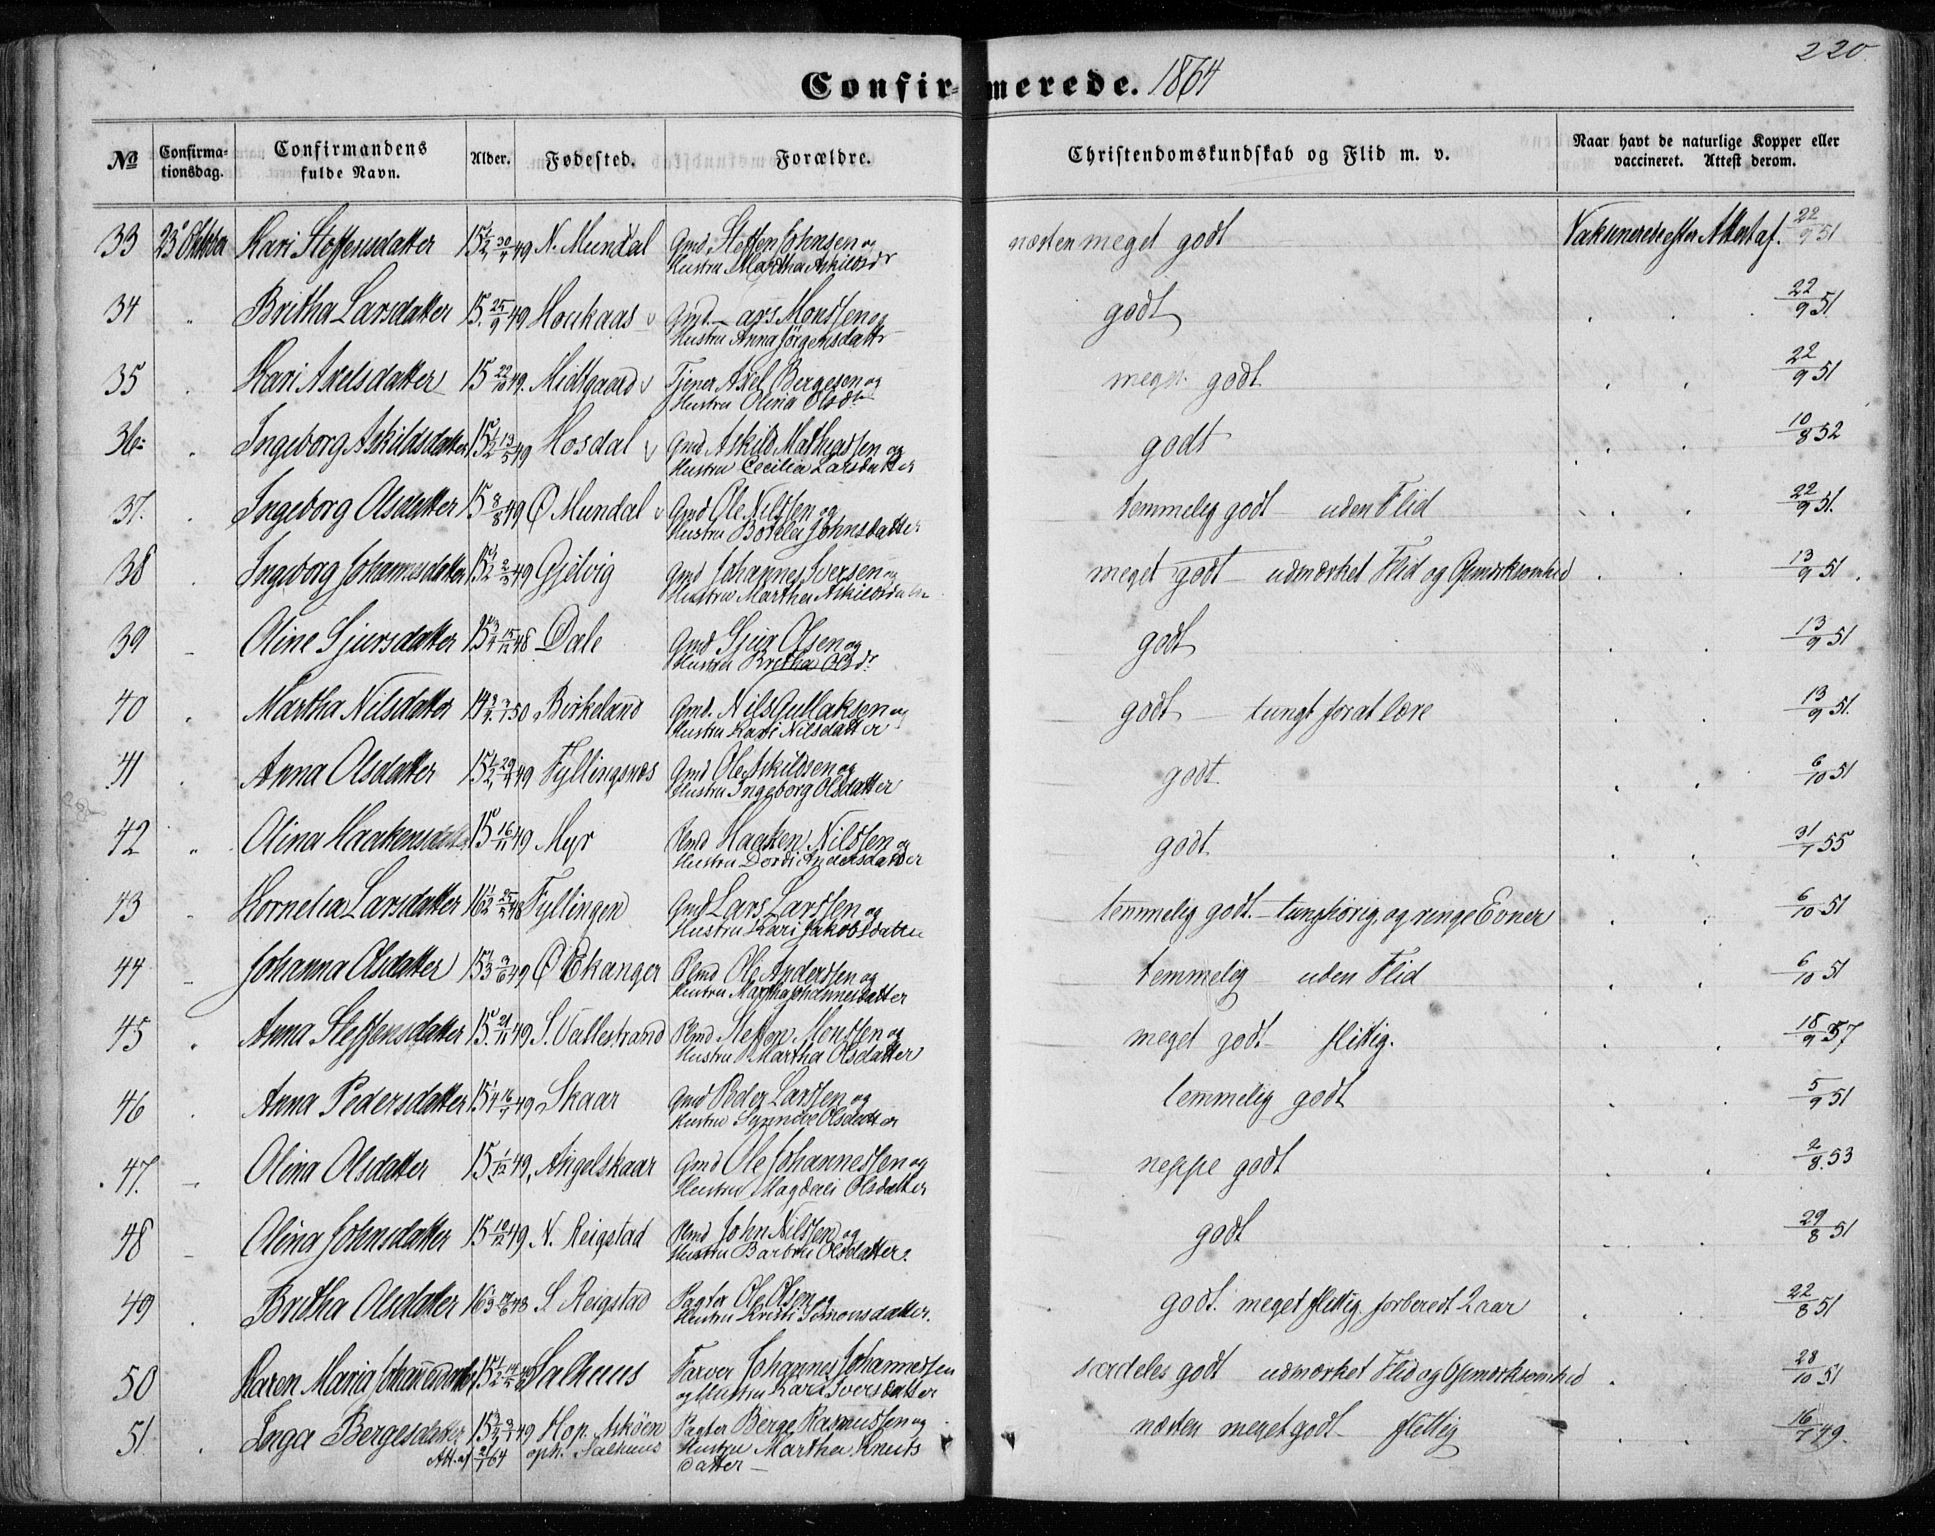 220.
Confirmerede. 1864
No Confirmationsdag. Confirmandens fulde Navn. Alder. Fødested. Forældre. Christendomskundskab og Flid m. v. Naar havt de naturlige Kopper eller vaccineret. Attest derom.
33 23 Oktober Kari Steffensdatter 15 1/2 49 N. Mundal Gmd. Steffen Johnsen og næsten meget godt Vakcineret efter Attest af 22/9 51
Hustru Martha Askildsdr
34 " Britha Larsdatter 15. 25/9 49 Houkaas Gmd. Lars Monsen og godt 22/9 51
Hustru Anna Jörgensdattr
35 Kari Axelsdatter 15 22/10 49. Midtgaard Tjener Axel Bergesen og meget godt 22/9 51
Hustru Olina Olsdr
36 Ingeborg Askildsdatter 15 1/2 13/5 49 Hosdal Gmd Askild Mathiassen og godt 10/8 52
Hustru Cecilia Larsdatter
37. Ingeborg Olsdatter 15 8/8 49 Ø Mundal Gmd Ole Nilssen og temmelig godt uden Flid 22/9 51.
Hustru Botilla Johnsdatter
38 Ingeborg Johannesdatter 15 1/2 49 Gjelvig Gmd Johannes Iversen og meget godt - udmærket Flid og Opmærksomhed 13/9 51.
Hustru Martha Askildsdatter
39 Oline Sjursdatter 15 3/4 15/12 48 Dale Gmd Sjur Olsen og godt 13/9 51
Hustru Britha Olsdr
40 Martha Nilsdatter 14 3/4 50 Birkeland Gmd. Nils Gullaksen og godt - tungt for at lære 13/9 51.
Hustru Kari Nilsdatter
41 Anna Olsdatter 15 1/2 29/4 49 Fyllingsnæs Gmd Ole Askildsen og godt 6/10 51
Hustru Ingeborg Olsdatter
42 " Olina Haakensdatter 15 16/11 49 Myr Plmd Haaken Nilssen og godt. 31/7 55
Hustru Dordi Andersdatter
43 Kornelia Larsdatter 16 1/2 25/5 48 Fyllingen Gmd Lars Larssen og temmelig godt. - tunghörig og ringe Evner 6/10 51
Hustru Kari Jakobsdatter
44 Johanna Olsdatter 15 1/3 9/6 49 Ø Ekanger Plmd Ole Anderssen og temmelig uden Flid 6/10 51
Hustru Martha Johannesdatter
45 Anna Steffensdatter 15. 21/11 49 S. Vallestrand Plmd Steffen Monssen og meget godt - flittig. 18/9 57
Hustru Martha Olsdatter
46 Anna Pedersdatter 15 1/4 16/7 49 Skaar Gmd Peder Larssen og temmelig godt 5/9 51
Hustru Synnöve Olsdatter
47. Olina Olsdatter 15 1/12 49, Angelskaar Gmd Ole Johannessen og neppe godt 2/8. 53
Hustru Magdeli Olsdatter
48 Olina Johnsdatter 15 10/12 49 N. Reigstad Plmd John Nilssen og godt 29/8 51
Hustru Barbra Olsdatter.
49 Britha Olsdatter 16 1/3 48 S. Reigstad Pagter Ole Olsen og godt. meget flittig. forberedt 2 aar 22/8 51
Hustru Kristi Simonsdatter.
50 Karen Maria Johannesdatter 15 1/2 14/5 49 Salhuus Farver Johannes Johannessen særdeles godt udmærket Flid og Opmærksomhed 28/10 51
og Hustru Kari Iversdatter
51 Inga Bergesdatter 15 3/4 49 Hop. Askøen Pagter Berge Rasmussen og næsten meget godt flittig 16/7 49.
Att. af 2/7 64 oph. Salhuus Hustru Martha Knuts
datter -